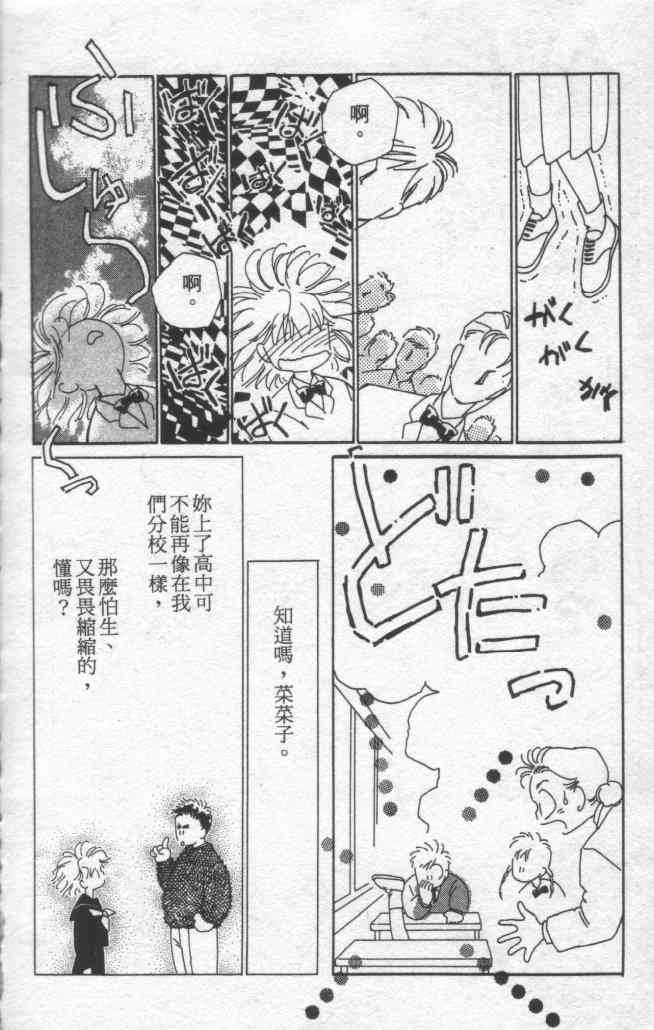 がく
がく
がく
啊。
ばく
ばく
ばく
ばく
ばく
ばく
ばく
ばく
啊。
ばく
ばく
ぷしゅうっ
どたっ
知道嗎，菜菜子。
妳上了高中可
不能再像在我
們分校一樣，
那麼怕生、
又畏畏縮縮的，
懂嗎？